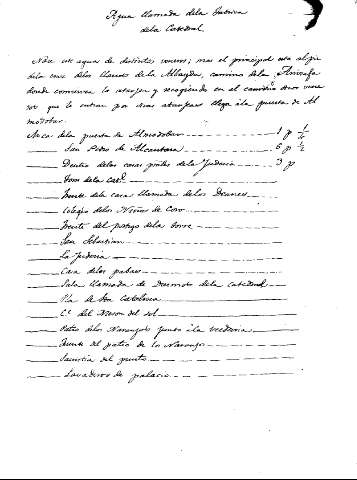 Agua llamada dela Fabrica
dela Catedral
Nace este agua de distintos veneros; mas el principal esta al pie
dela cruz delos llanos de la Albayda, camino dela Arrizafa
donde comienza la atarjea y recogiendo en el camino otros vene
ros que le entran por otras atarjeas llega á la puerta de Al
modobar.
Arca dela puerta de Almodobar 1 p 1/2
San Pedro de Alcantara 6 p 1/2
Dentro delas casas dela Juderia 3 p
Torre dela Cated.
Fuente dela casa llamada delos Deanes
Colegio delos Niños de Coro
Fuente del patio dela torre
San Sebastian
La Juderia
Casa delos
Sala llamada de dela Catedral
Pla de Sta Catalina
C.ª del Meson del sol
Patio delos Naranjos junto á la
Fuente del patio de los Naranjos
Sacristia del punto
Lavaderos de palacio